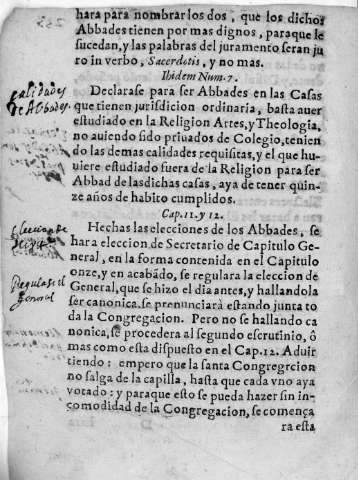 hara para nombrar los dos, que los dichos
Abbades tienen por mas dignos, paraque le
sucedan, y las palabras del juramento seran ju
ro in verbo, Sacerdotis, y no mas.
Ibidem Num. 7.
calidades
de Abbades.
Declarase para ser Abbades en las Casas
que tienen jurisdicion ordinaria, basta auer
estudiado en la Religion Artes, y Theologia,
no auiendo sido priuados de Colegio, tenien
do las demas calidades requisitas, y el que hu
uiere estudiado fuera de la Religion para ser
Abbad de las dichas casas, aya de tener quin-
ze años de habito cumplidos.
Cap. 11. y 12.
Eleccion de
Hechas las elecciones de los Abbades, se
hara eleccion de Secretario de Capitulo Ge-
neral, en la forma contenida en el Capitulo
onze, y en acabādo, se regulara la eleccion de
Regulase el
general
General, que se hizo el dia antes, y hallandola
ser canonica, se prenunciarà estando junta to
da la Congregacion. Pero no se hallando ca
nonica, se procedera al segundo escrutinio, ô
mas como esta dispuesto en el Cap. 12. Aduir
tiendo: empero que la santa Congregrcion
no salga de la capilla, hasta que cada vno aya
votado: y paraque esto se pueda hazer sin in-
comodidad de la Congregacion, se comença
ra esta